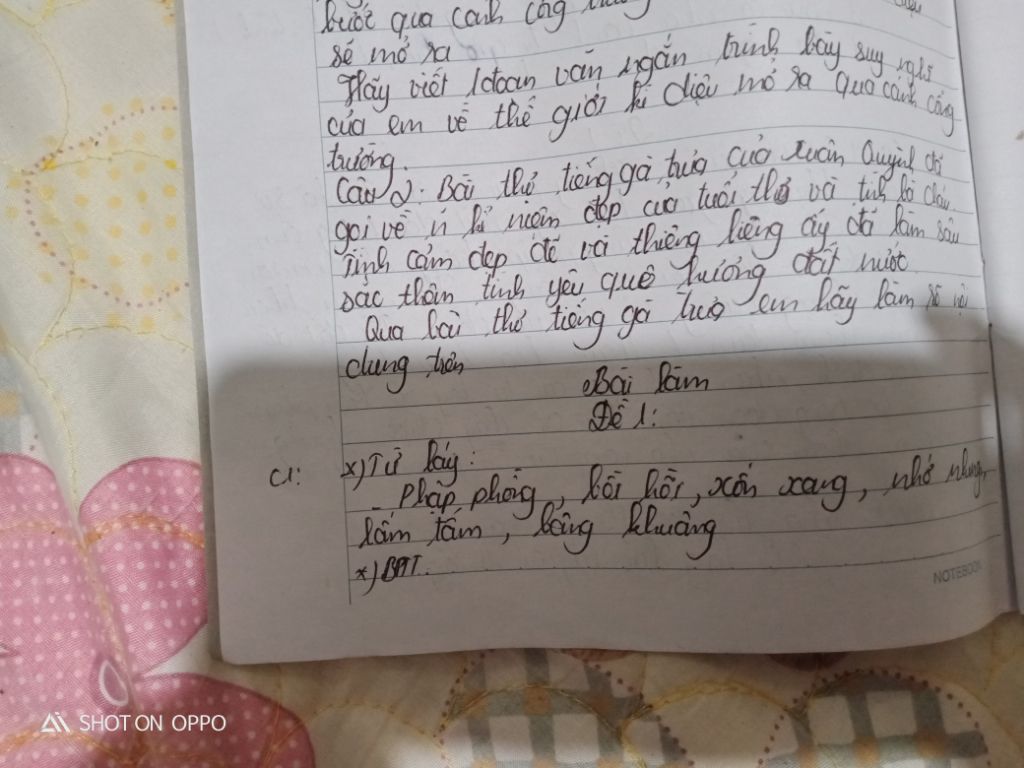 bước qua cánh cổng
sẽ mở ra
Hãy viết 1 đoạn văn ngắn trình bày suy nghĩ
của em về thế giới kì diệu mở ra qua cánh cổng
trường.
Câu 2: Bài thơ tiếng gà trưa của Xuân Quỳnh đã
gọi về kỉ niệm đẹp của tuổi thơ và tình bà cháu.
Tình cảm đẹp đẽ và thiêng liêng ấy đã làm sâu
sắc thêm tình yêu quê hương đất nước
Qua bài thơ tiếng gà trưa em hãy làm rõ nội
dung trên
Bài làm
Đề 1:
C1: *) Từ láy:
_ Phập phồng, bồi hồi, xốn xang, nhớ nhung,
lấm tấm, bâng khuâng
*) BPT
NOTEBOOK
SHOT ON OPPO